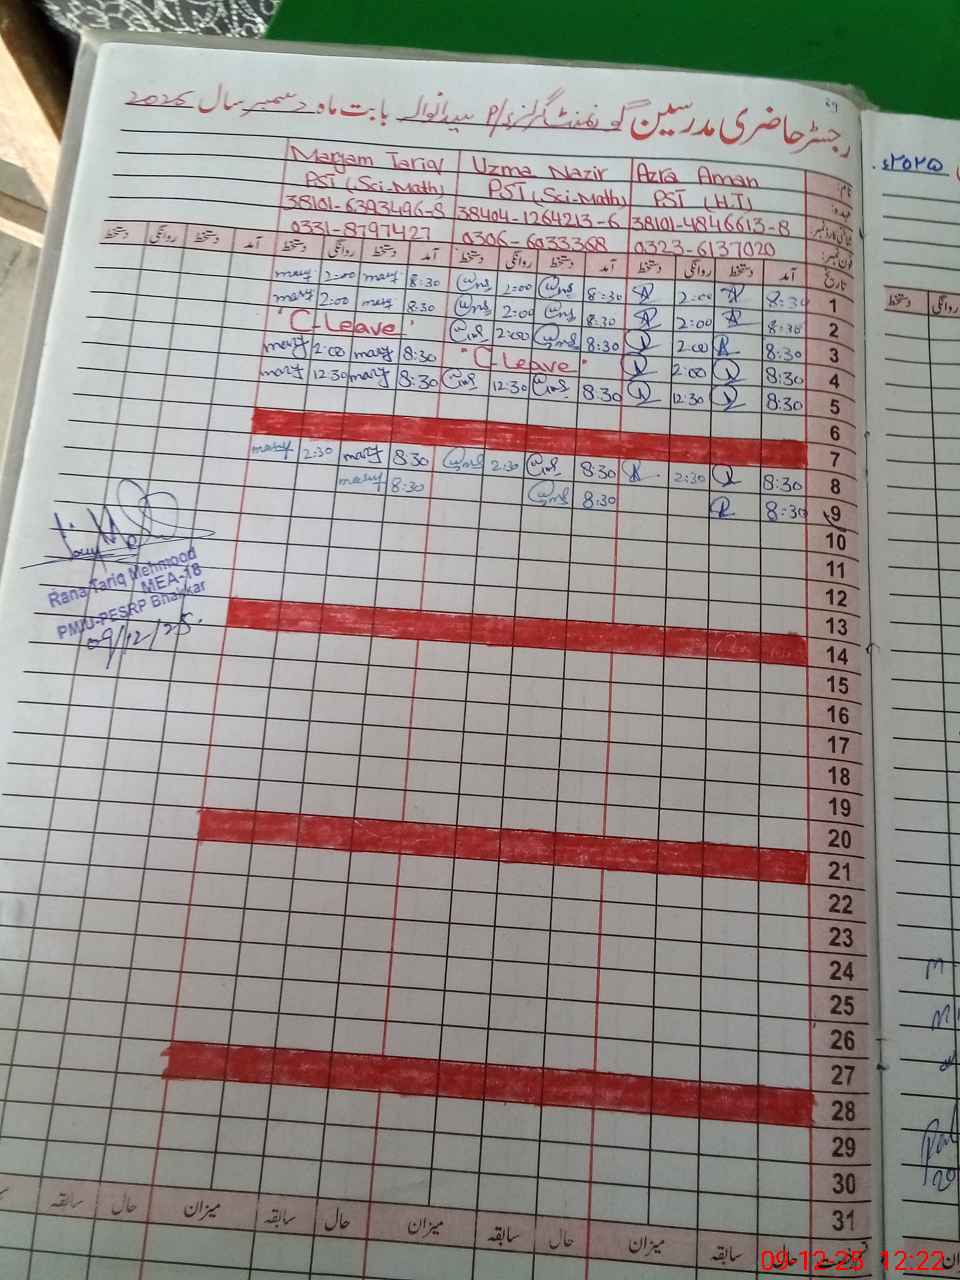 ۲۹
رجسٹر حاضری مدرسین گورنمنٹ گرلز P/ بابت ماہ دسمبر سال 2025
۲۰۲۵ء
نام: Azra Aman Uzma Nazir Maryam Tariq
عہدہ: PST (H.T) PST (Sci-Math) PST (Sci-Math)
شناختی کارڈ نمبر: 38101-4846613-8 38404-1264213-6 38101-6393496-8
فون نمبر: 0323-6137020 0306-6033368 0331-8797427
تاریخ آمد دستخط روانگی دستخط آمد دستخط روانگی دستخط آمد دستخط روانگی دستخط آمد دستخط روانگی دستخط
روانگی دستخط
1 8:30 2:00 8:30 2:00 8:30 mary 2:00 mary
2 8:30 2:00 8:30 2:00 8:30 mary 2:00 mary
3 8:30 2:00 8:30 2:00 "C-Leave"
4 8:30 2:00 "C-Leave" 8:30 mary 2:00 mary
5 8:30 12:30 8:30 12:30 8:30 mary 12:30 mary
6
7
8 8:30 2:30 8:30 2:30 8:30 mary 2:30 mary
9 8:30 8:30 8:30 mary
10
11
12
13
14
15
16
17
18
19
20
21
22
23
24
25
26
27
28
29
30
31
Rana Tariq Mehmood
MEA-18
PMIU-PESRP Bhakkar
09/12/25.
حال سابقہ میزان حال سابقہ میزان حال سابقہ میزان حال سابقہ
09-12-25 12:22